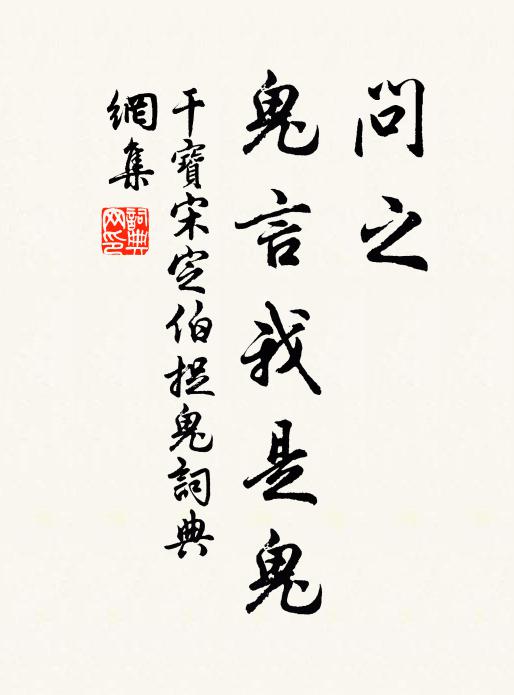 問之
鬼言我是鬼
干寶宋定伯捉鬼詞典
網集
詞典
网印